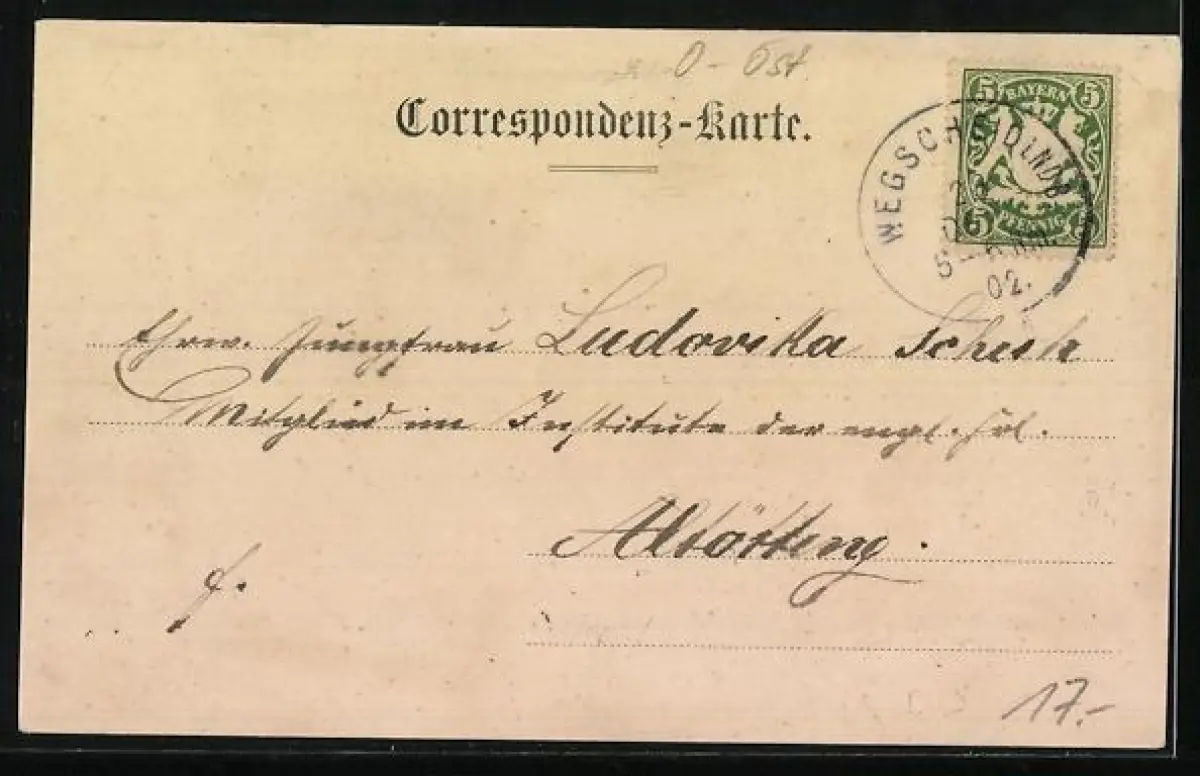 O-Öst.
Correspondenz-Karte.
5 BAYERN 5
5 PFENNIG
WEGSCHEID
02.
Ehrw. Jungfrau Ludovika
Mitglied im Institute der engl. Frl.
Altötting.
f.
17.-